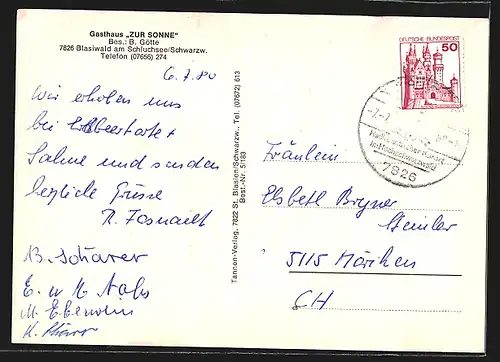 Gasthaus „ZUR SONNE"
Bes.: B. Götte
7826 Blasiwald am Schluchsee/Schwarzw.
Telefon (07656) 274
6.7.80
Wir erholen uns
bei
Sahne und senden
herzliche Grüsse
R. Fosnacht
B. Schärer
E. u M.
M. Eberwein
K.
Tannon-Verlag, 7822 St. Blasien/Schwarzw., Tel. (07672) 613
Best.-Nr. 51183
DEUTSCHE BUNDESPOST
50
7826
Fräulein
Elsbeth Bryner
5115 Möriken
CH